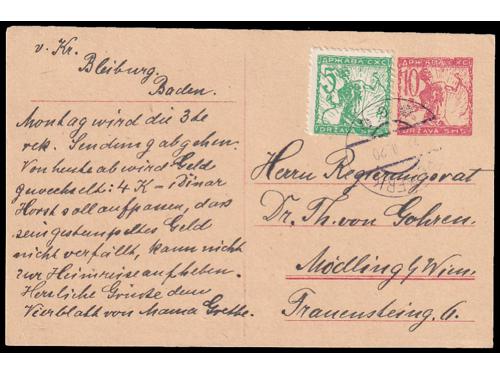 v. Kr.
Bleiburg,
Boden.
Montag wird die 3te
rek. Sendung abgehen.
Von heute ab wird Geld
gewechselt: 4 K – 1 Dinar
Horst soll aufpassen, dass
sein gestempeltes Geld
nicht verfällt, kann nicht
zur Heimreise aufheben.
Herzliche Grüsse dem
Vierblatt von Mama Grethe.
5
ДРЖАВА СХС
DRŽAVA SHS
ДРЖАВА СХС
10
DRŽAVA SHS
Herrn Regierungsrat
Dr. Th. von Gohren.
Mödling b/ Wien.
Trauensteing. 6.